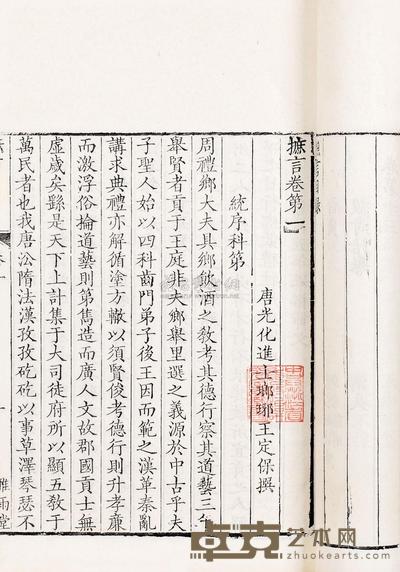 摭言卷第一
唐光化進士瑯琊王定保撰
統序科第
周禮鄉大夫具鄉飲酒之教考其德行察其道藝三年
舉賢者貢于王庭非夫鄉舉里選之義源於中古乎夫
子聖人始以四科齒門弟子後王因而範之漢革秦亂
講求典禮亦解循塗方轍以須賢俊考德行則升孝廉
而激浮俗掄道藝則第雋造而廣人文故郡國貢士無
虛歲矣繇是天下上計集于大司徒府所以顯五教于
萬民者也我唐沿隋法漢孜孜矻矻以事草澤琴瑟不
雅雨堂
卓克艺术网
www.zhuokearts.com